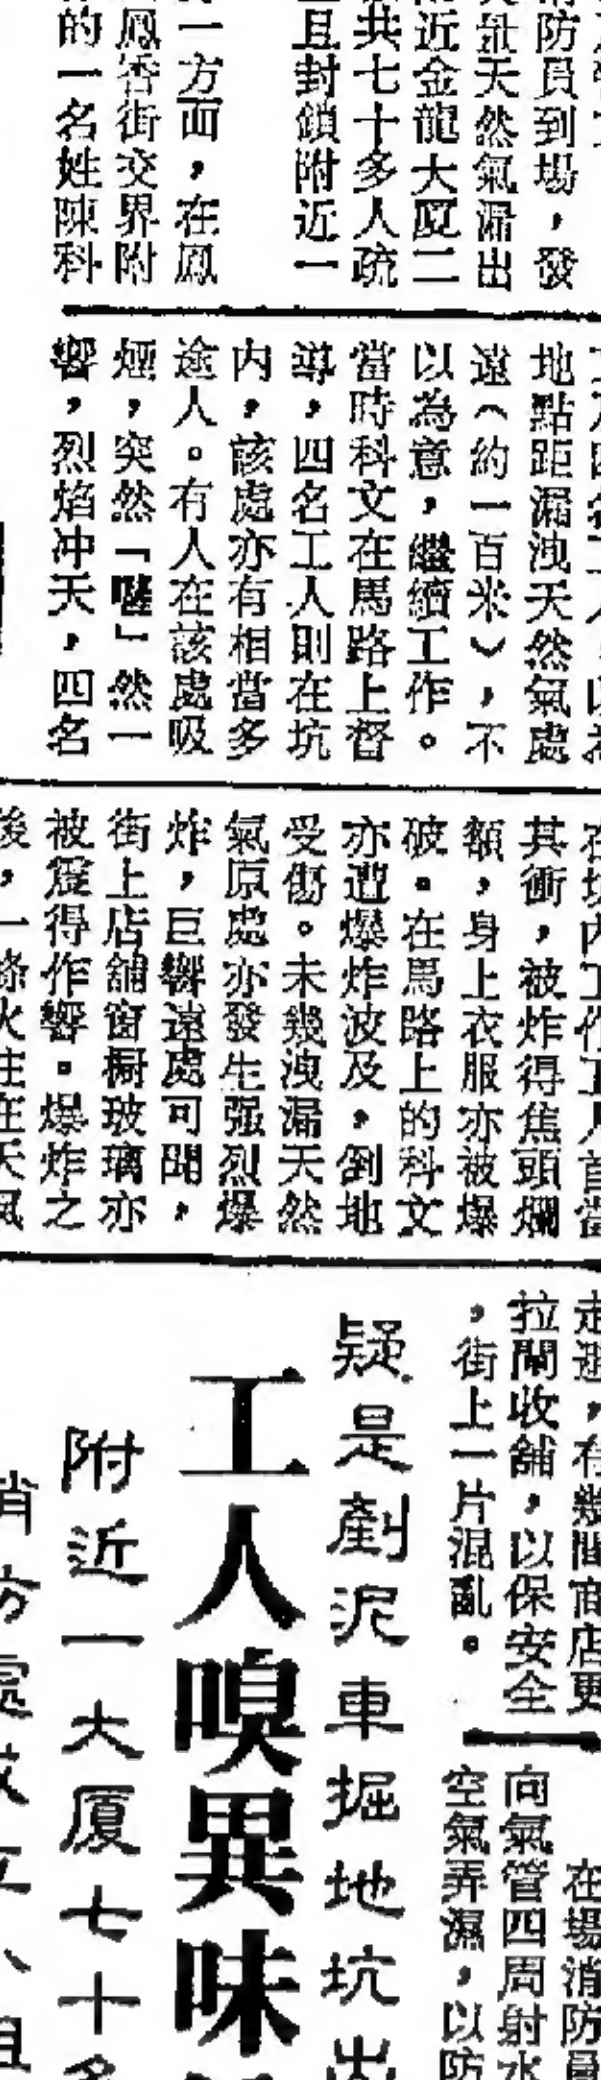 消防員到場，發
量天然氣漏出
附近金龍大厦二
共七十多人疏
且封鎖附近一
一方面，在鳳
鳳香街交界附
的一名姓陳科
地點距漏洩天然氣處
遠（約一百米），不
以為意，繼續工作。
當時科文在馬路上督
導，四名工人則在坑
内，該處亦有相當多
途人。有人在該處吸
煙，突然「嘭」然一
響，烈焰冲天，四名
在坑内工作工人首當
其衝，被炸得焦頭爛
額，身上衣服亦被爆
破。在馬路上的科文
亦遭爆炸波及，倒地
受傷。未幾洩漏天然
氣原處亦發生强烈爆
炸，巨響遠處可聞，
街上店舖窗橱玻璃亦
被震得作響。爆炸之
後，一條火柱在天氣
走避，有幾間商店更
拉閘收舖，以保安全
，街上一片混亂。
在場消防員
向氣管四周射水
空氣弄濕，以防
疑是剷泥車掘地坑出
工人嗅異味
附近一大厦七十多
消防處成立小組